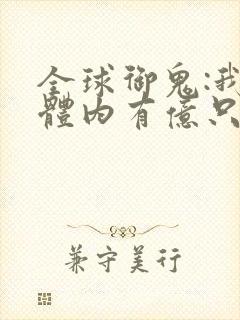 全球御鬼:我
體內有億只
兼守美行